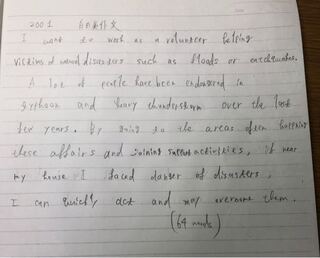 2001 自由英作文
I want to work as a volunteer helping
victims of natural disasters such as floods or earthquakes.
A lot of people have been endangered in
typhoon and heavy thunderstorm over the last
few years. By going to the areas often happening
these affairs and joining support activities, if near
my house I faced danger of disasters,
I can quickly act and may overcome them.
(64 words)